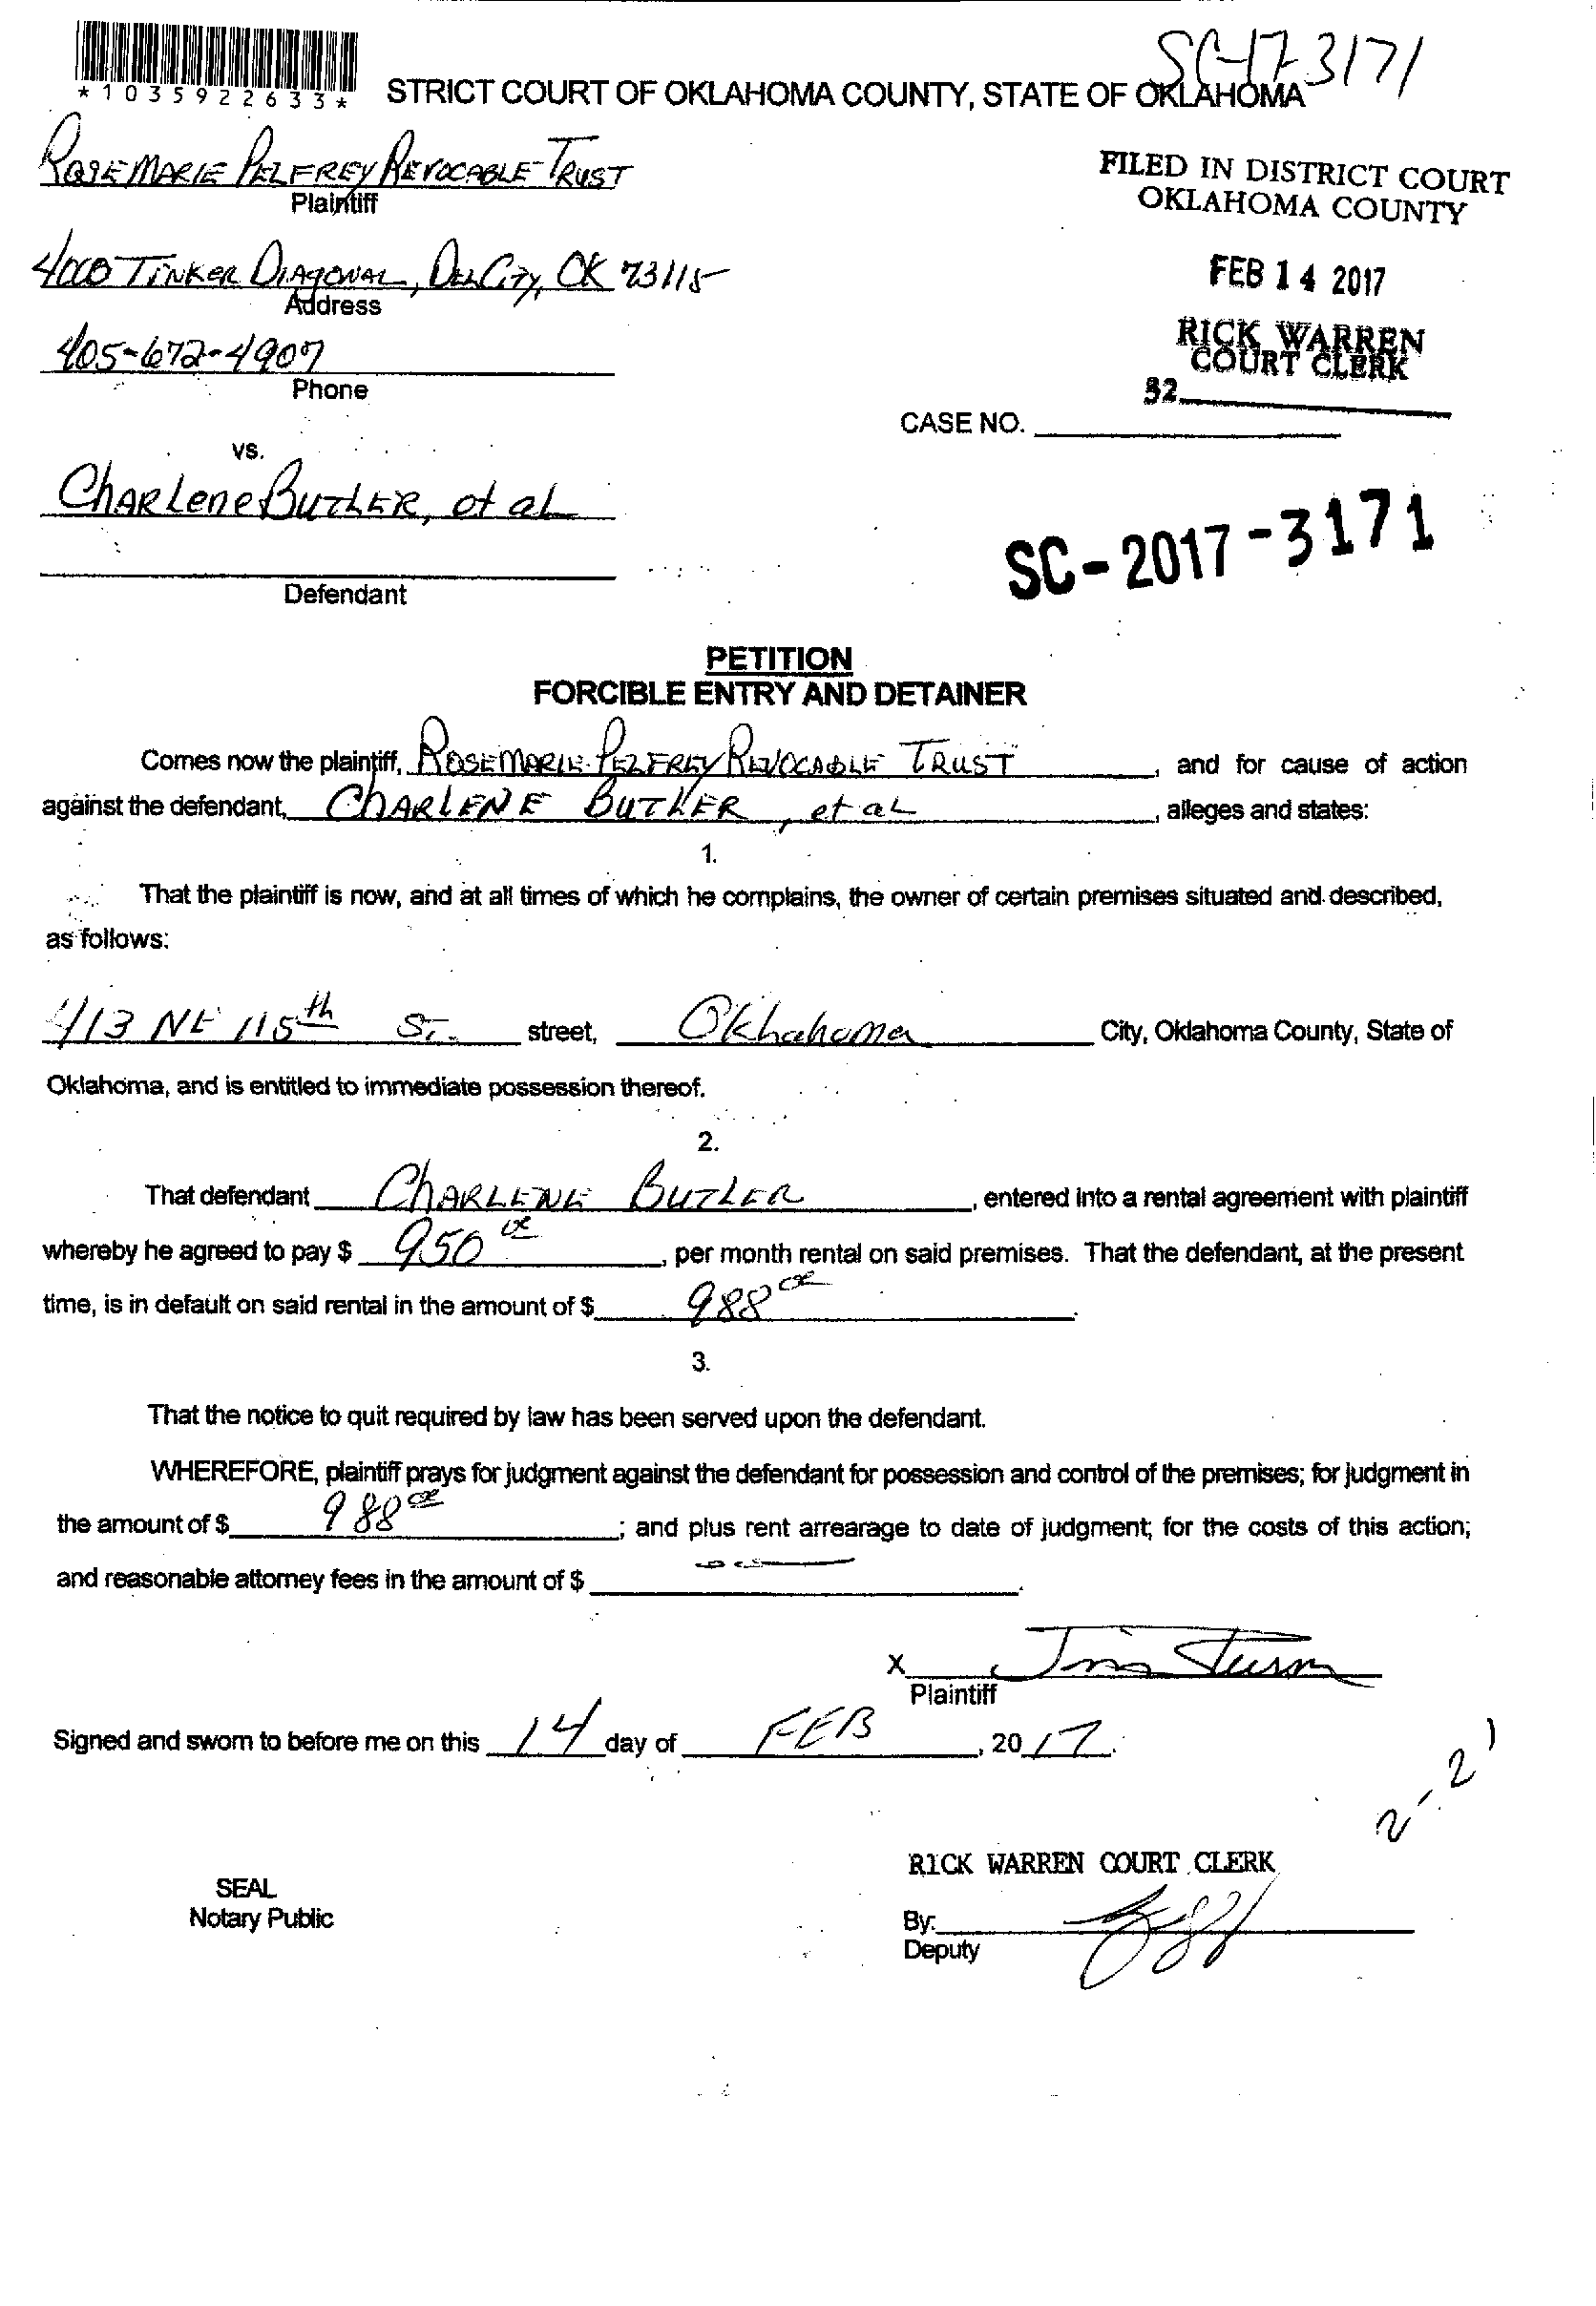 SC-17-3171
*1035922633*
STRICT COURT OF OKLAHOMA COUNTY, STATE OF OKLAHOMA
ROSEMARIE PELFREY REVOCABLE TRUST
Plaintiff
FILED IN DISTRICT COURT
OKLAHOMA COUNTY
4000 TINKER DIAGONAL, DEL CITY, OK 73115
Address
FEB 14 2017
405-672-4907
Phone
RICK WARREN
COURT CLERK
32
CASE NO.
vs.
CHARLENE BUTLER, et al
SC-2017-3171
Defendant
PETITION
FORCIBLE ENTRY AND DETAINER
Comes now the plaintiff, ROSEMARIE PELFREY REVOCABLE TRUST, and for cause of action
against the defendant, CHARLENE BUTLER, et al, alleges and states:
1.
That the plaintiff is now, and at all times of which he complains, the owner of certain premises situated and described,
as follows:
413 NE 115th St. street, Oklahoma City, Oklahoma County, State of
Oklahoma, and is entitled to immediate possession thereof.
2.
That defendant CHARLENE BUTLER, entered into a rental agreement with plaintiff
whereby he agreed to pay $ 950 00, per month rental on said premises. That the defendant, at the present
time, is in default on said rental in the amount of $ 988 00.
3.
That the notice to quit required by law has been served upon the defendant.
WHEREFORE, plaintiff prays for judgment against the defendant for possession and control of the premises; for judgment in
the amount of $ 988 00; and plus rent arrearage to date of judgment; for the costs of this action;
and reasonable attorney fees in the amount of $ .
X
Plaintiff
Signed and sworn to before me on this 14 day of FEB, 2017.
2-21
RICK WARREN COURT CLERK
SEAL
Notary Public
By:
Deputy